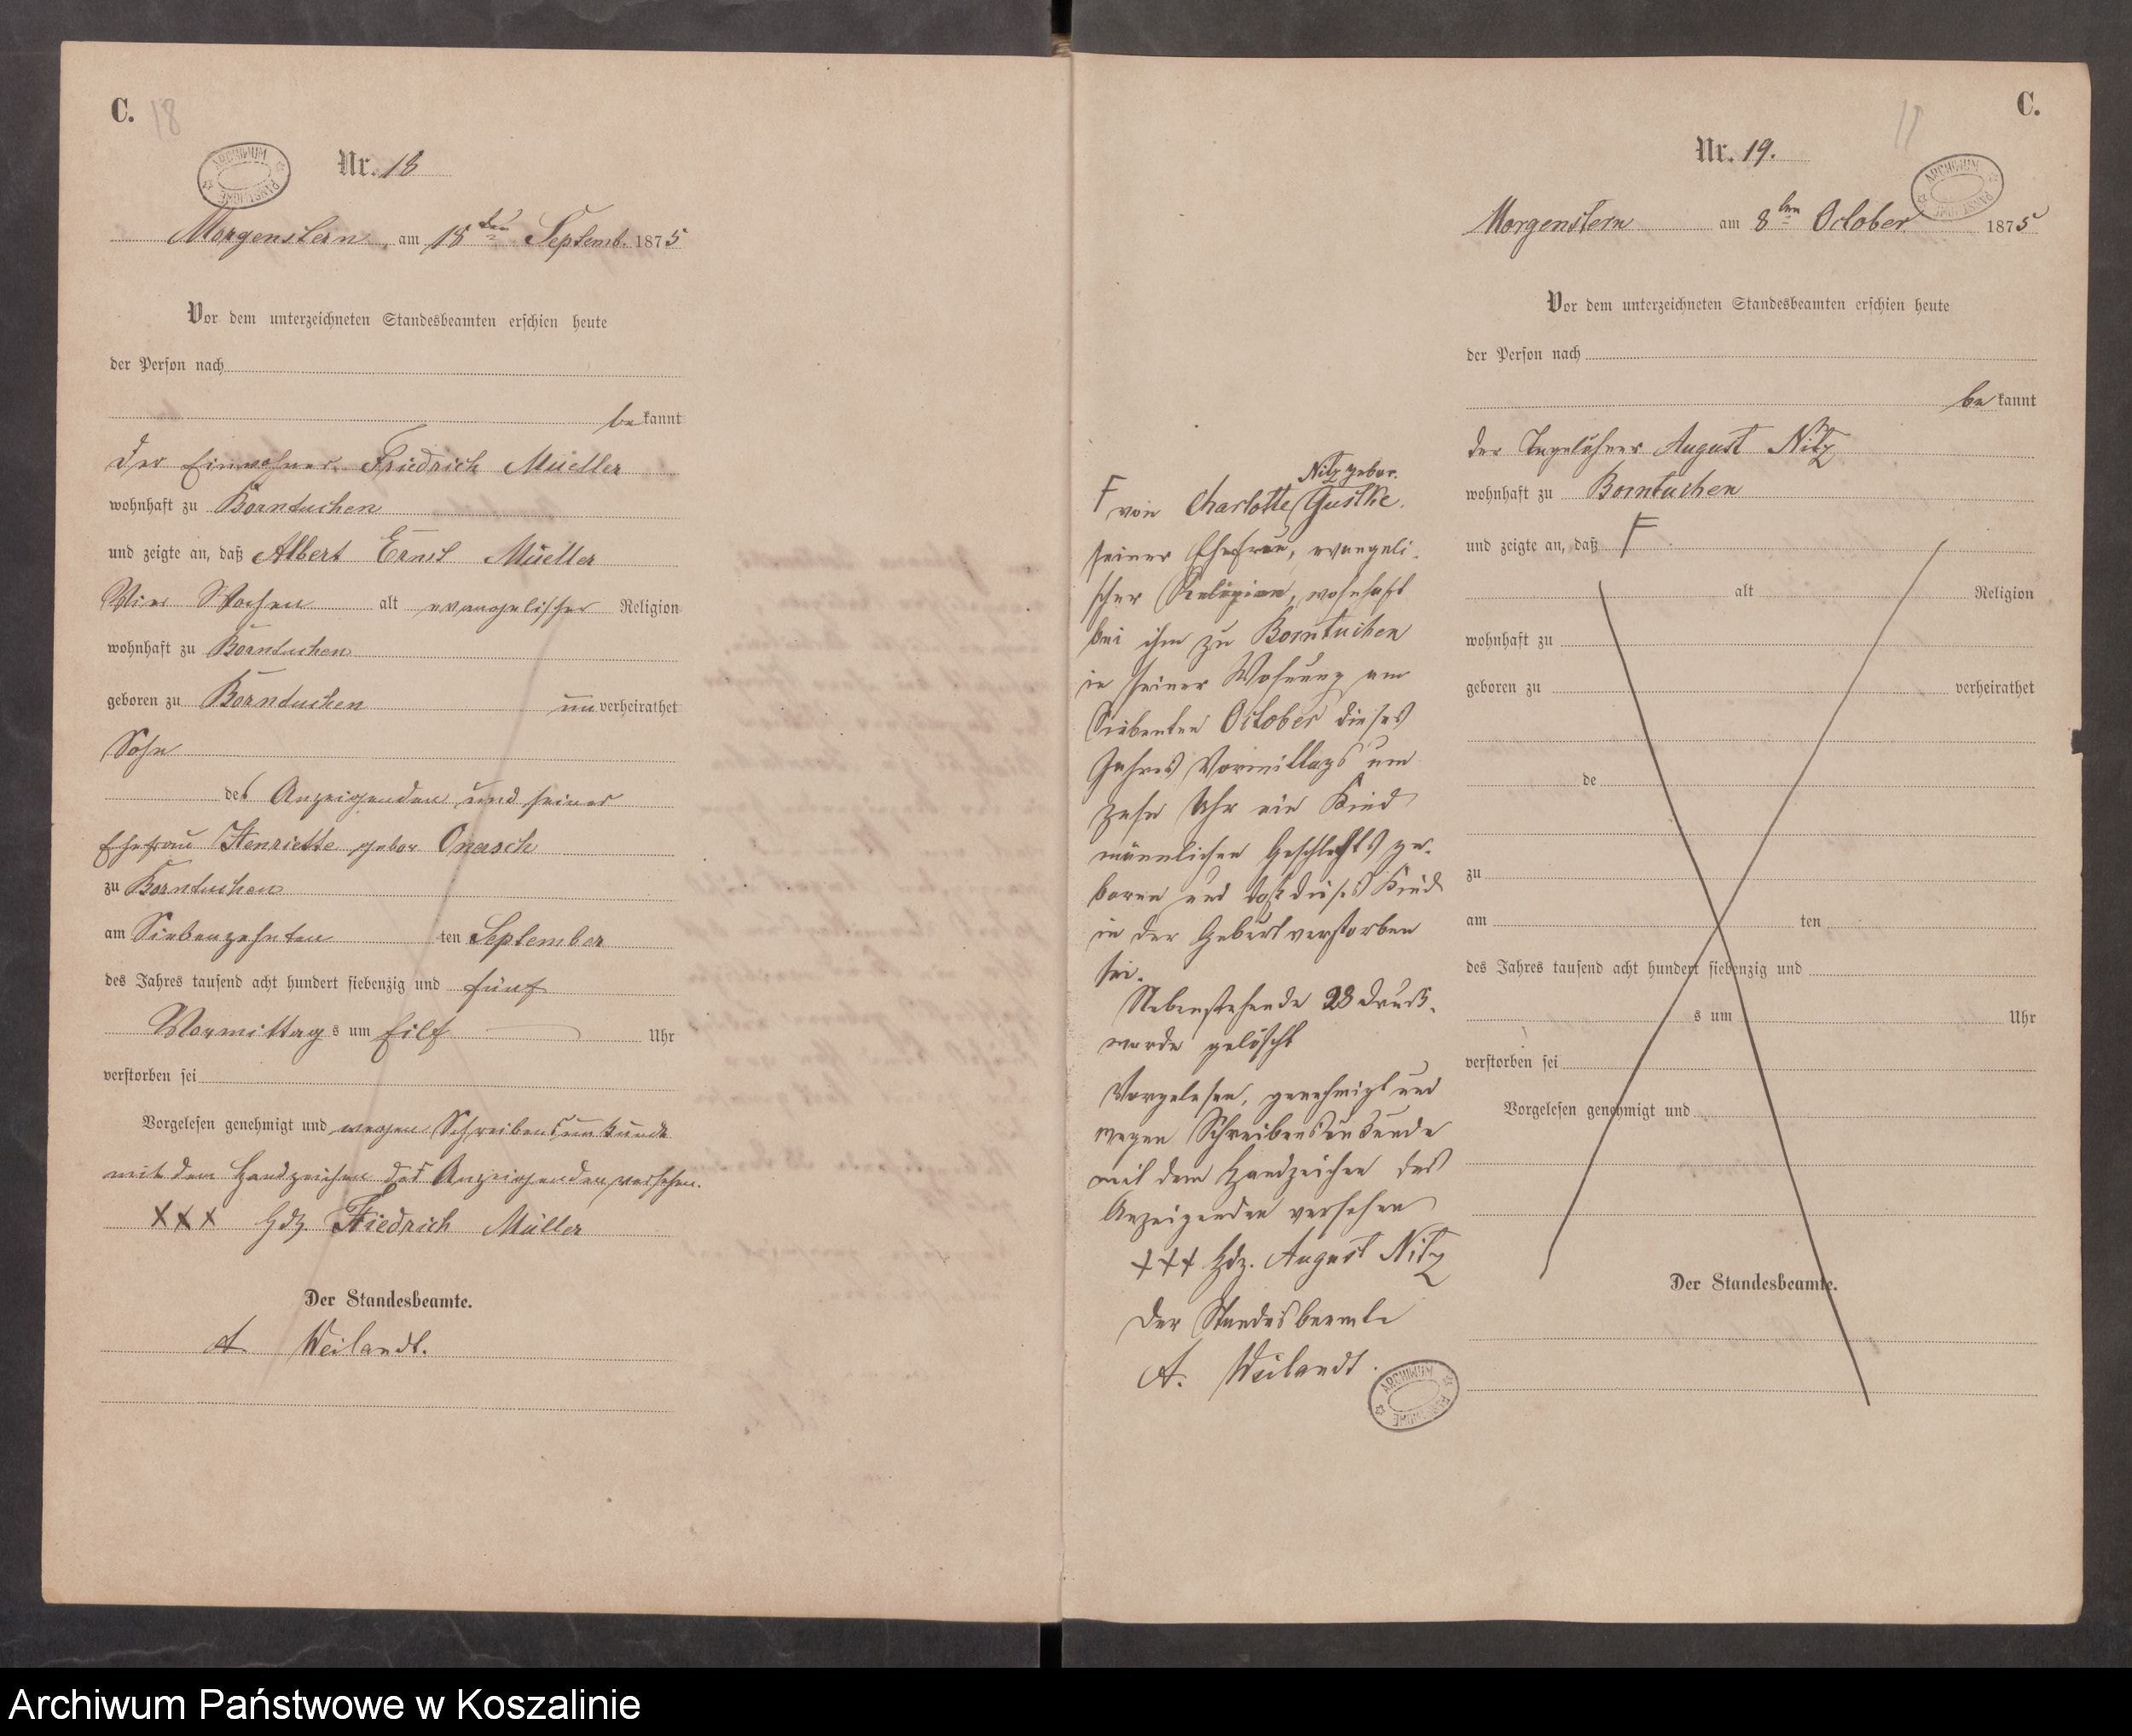 C. 18
Nr. 18
Morgenstern, am 18ten Septemb. 1875
Vor dem unterzeichneten Standesbeamten erschien heute
der Person nach
bekannt
der Einwohner Friedrich Mueller
wohnhaft zu Borntuchen
und zeigte an, daß Albert Ernst Mueller
Vier Wochen alt evangelischer Religion
wohnhaft zu Borntuchen
geboren zu Borntuchen unverheirathet
Sohn
des Anzeigenden und seiner
Ehefrau Henriette gebor
zu Borntuchen
am Siebenzehnten ten September
des Jahres tausend acht hundert siebenzig und fünf
Vormittag s um Eilf Uhr
verstorben sei
Vorgelesen genehmigt und wegen Schreibensunkunde
mit dem Handzeichen des Anzeigenden versehen.
XXX Hdz Friedrich Müller
Der Standesbeamte.
A Weilandt.
ARCHIWUM PAŃSTWOWE
C.
Nr. 19.
Morgenstern am 8ten October 1875
Vor dem unterzeichneten Standesbeamten erschien heute
der Person nach
bekannt
der Tagelöhner August Nitz
wohnhaft zu Borntuchen
und zeigte an, daß F
alt Religion
wohnhaft zu
geboren zu verheirathet
de
zu
am ten
des Jahres tausend acht hundert siebenzig und
s um Uhr
verstorben sei
Vorgelesen genehmigt und
Der Standesbeamte.
Nitz gebor.
F von Charlotte Gustke.
seiner Ehefrau, evangeli-
scher Religion, wohnhaft
bei ihm zu Borntuchen
in seiner Wohnung am
Siebenten October dieses
Jahres Vormittags um
zehn Uhr ein Kind
männlichen Geschlechts ge-
boren und daß dieses Kind
in der Geburt verstorben
sei.
Nebenstehende 28 Druck-
worde gelöscht
Vorgelesen, genehmigt und
wegen Schreibensunkunde
mit dem Handzeichen des
Anzeigenden versehen
+++ Hdz. August Nitz
Der Standesbeamte
A. Weilandt.
ARCHIWUM PAŃSTWOWE
Archiwum Państwowe w Koszalinie